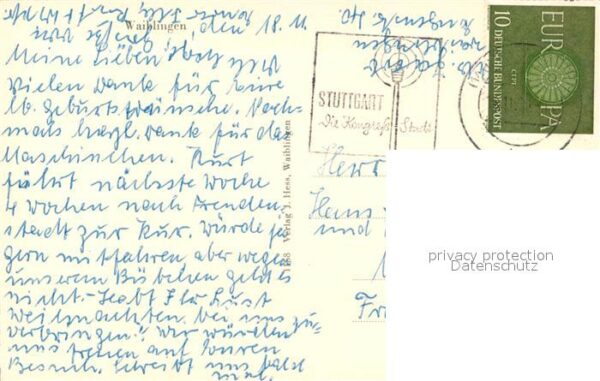 Waiblingen, den 18. 11.
Meine Lieben!
Vielen Dank für Eure
lb. Geburtstagswünsche. Noch-
mals herzl. Dank für das
Maschinchen. Kurt
fährt nächste Woche
4 Wochen nach Freuden-
stadt zur Kur. Würde ja
gern mitfahren aber wegen
unserem Bübchen geht es
nicht. - Habt Ihr Lust
Weihnachten bei uns zu
verbringen? Wir würden
uns freuen auf Euren
Besuch. Schreibt uns bald
mal.
1168 Verlag J. Hess, Waiblingen
STUTTGART
Die Kongreß-Stadt
EUROPA
CEPT
10 DEUTSCHE BUNDESPOST
Herr
Hans
und
Fr
privacy protection
Datenschutz